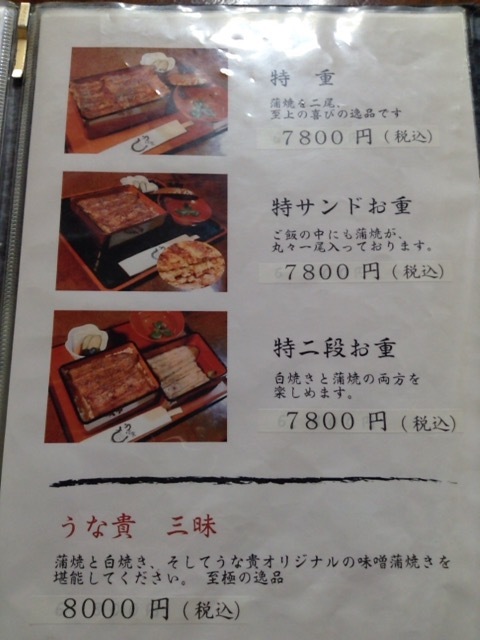 特 重
蒲焼を二尾、
至上の喜びの逸品です
7800円(税込)
特サンドお重
ご飯の中にも蒲焼が、
丸々一尾入っております。
7800円(税込)
特二段お重
白焼きと蒲焼の両方を
楽しめます。
7800円(税込)
うな貴 三昧
蒲焼と白焼き、そしてうな貴オリジナルの味噌蒲焼きを
堪能してください。 至極の逸品
8000円(税込)